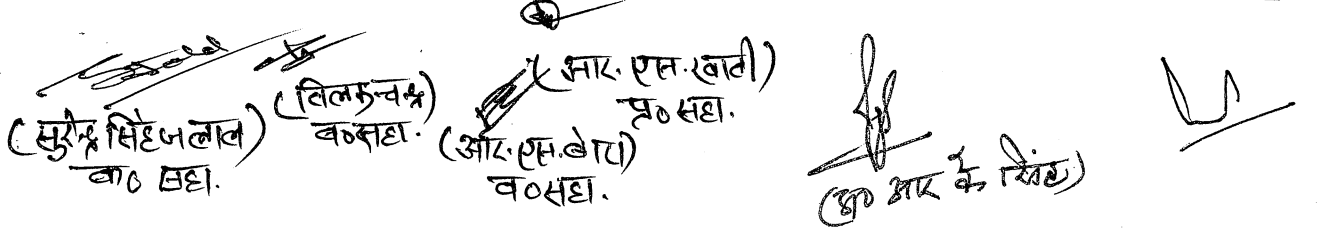 (सुरेन्द्र सिंह जलाल)
व० सहा.
(तिलकचन्द्र)
व०सहा.
(आर. एस. खाती)
प्र० सहा.
(आर. एस. बोरा)
व०सहा.
(डा० आर के सिंह)